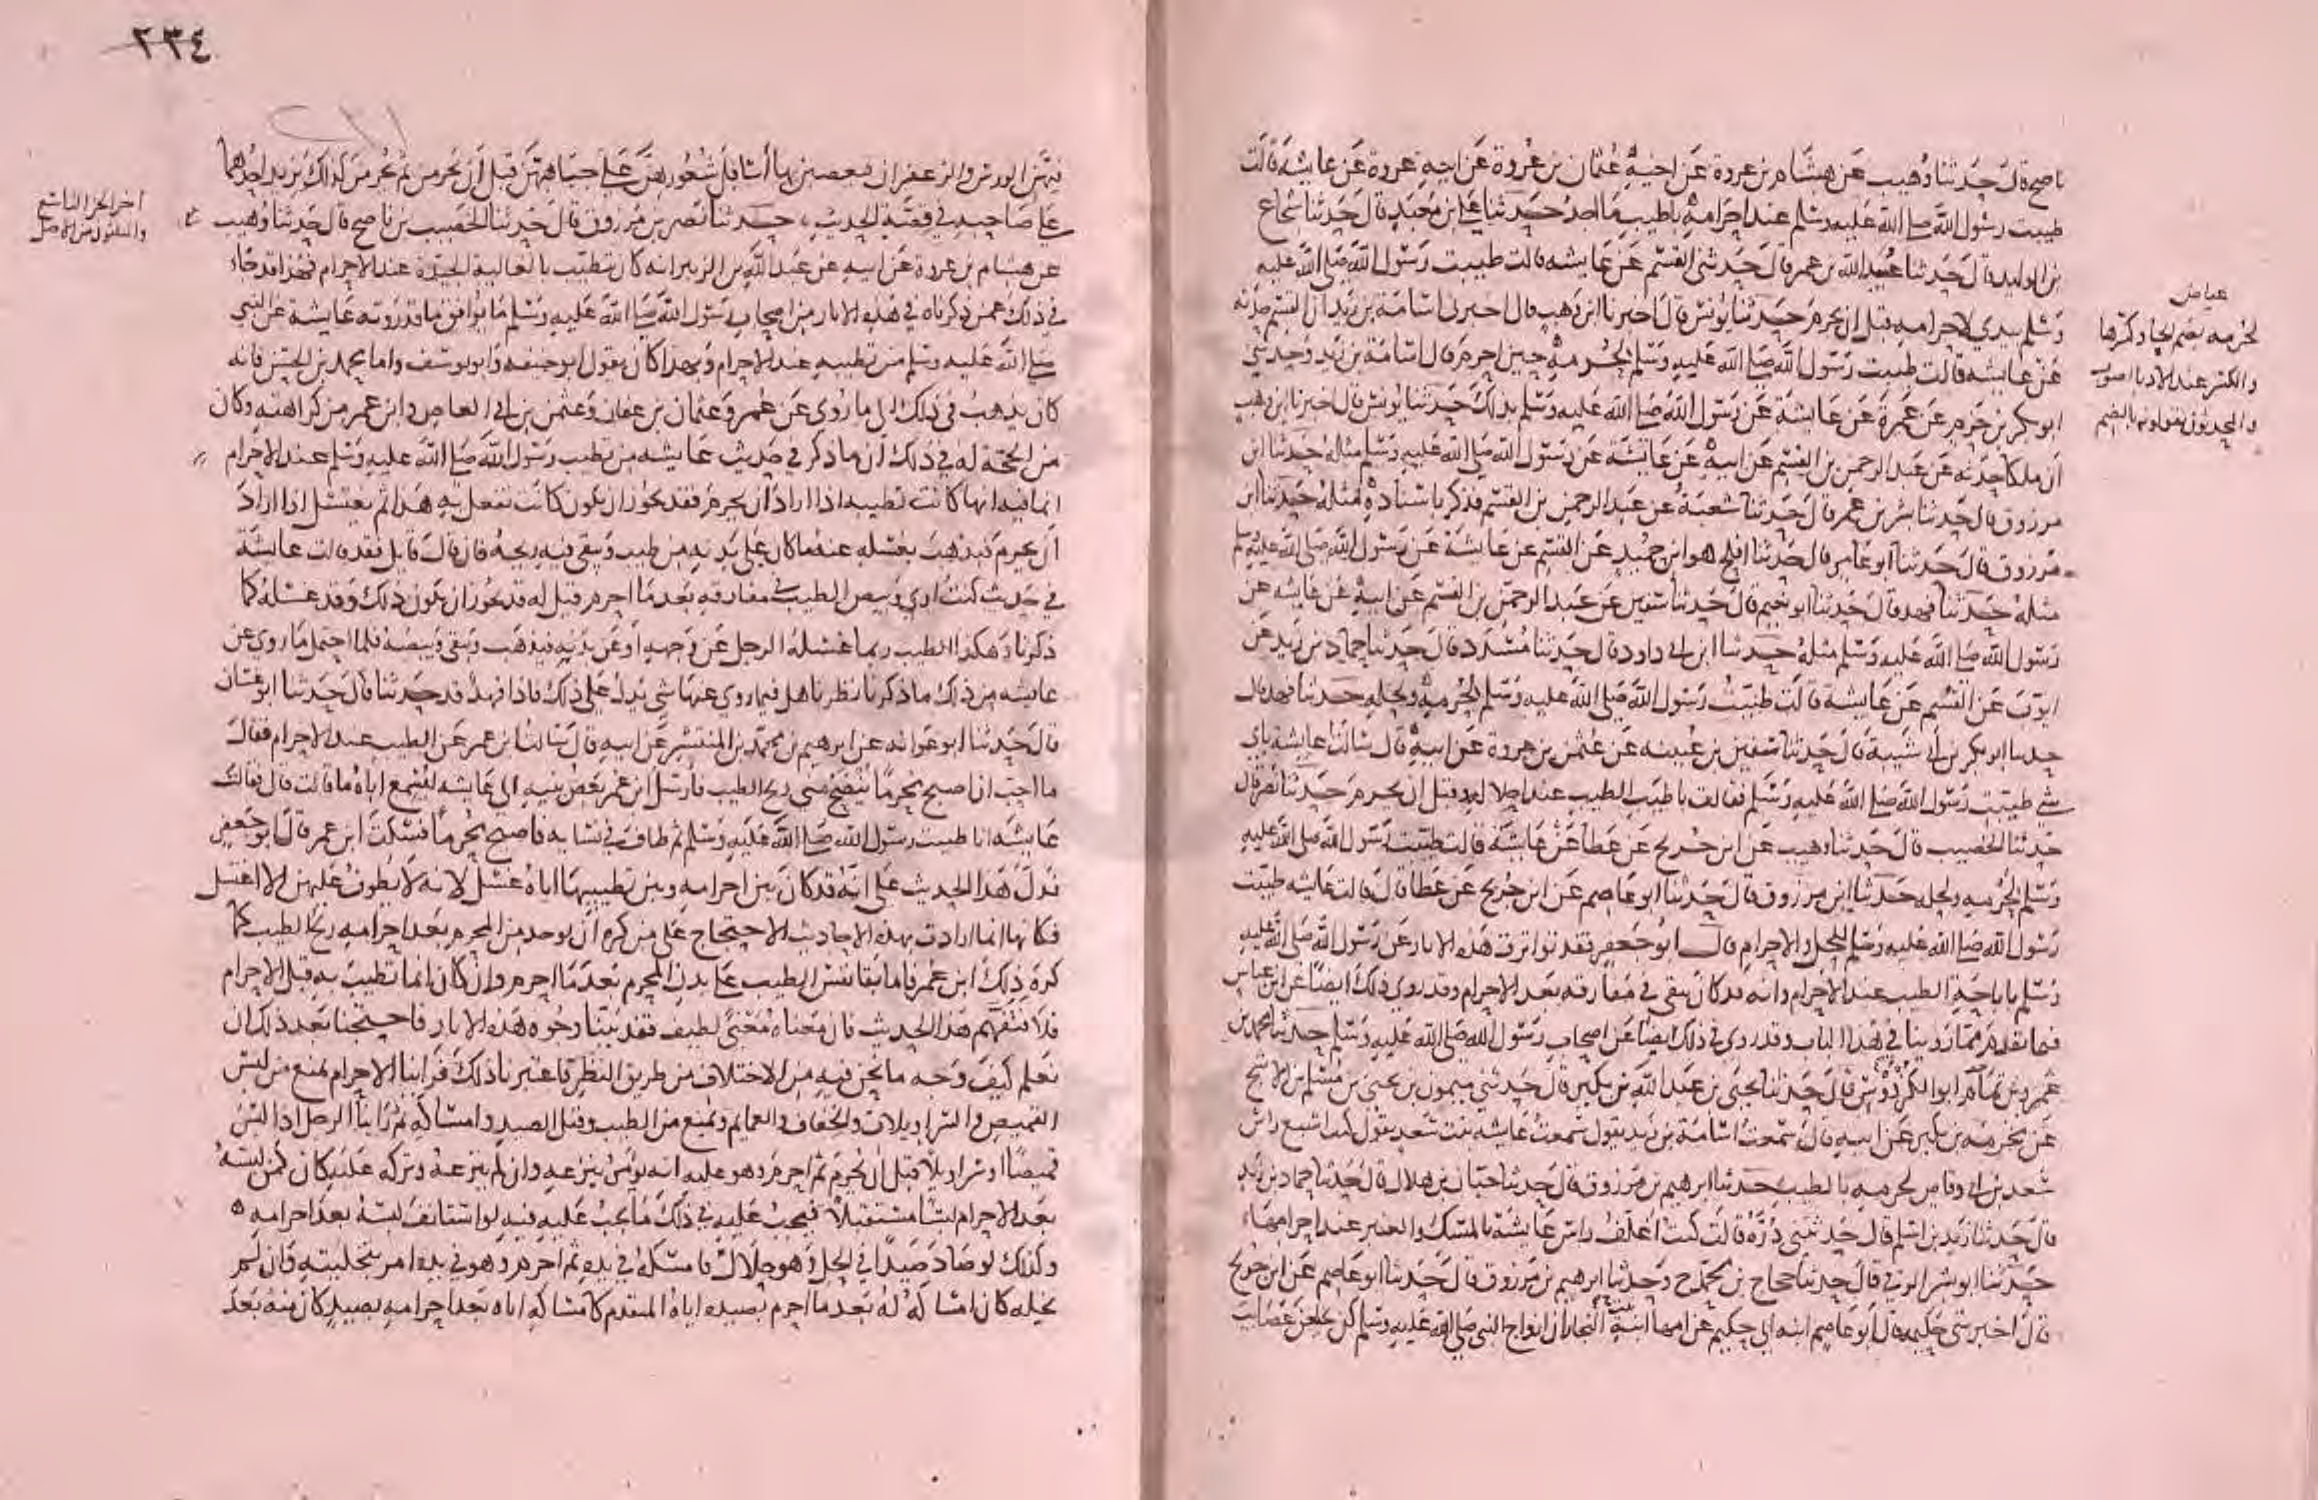 ناصح قال حدثنا وهيب عن هشام بن عروة عن اخيه عثمان بن عروة عن ابيه عروة عن عايشة قالت
طيبت رسول الله صلى الله عليه وسلم عند احرامه باطيب ما اجد حدثنا علي بن معبد قال حدثنا شجاع
بن الوليد قال حدثنا عبيد الله بن عمر قال حدثني القسم عن عايشه قالت طيبت رسول الله صلى الله عليه
وسلم بيدي لاحرامه قبل ان يحرم حدثنا يونس قال اخبرنا ابن وهب قال اخبرني اسامة بن زيد ان القسم حدثه
عن عايشه قالت طيبت رسول الله صلى الله عليه وسلم لحرمه حين احرم قال اسامة بن زيد وحدثني
ابو بكر بن حزم عن عمرة عن عايشة عن رسول الله صلى الله عليه وسلم بذلك حدثنا يونس قال اخبرنا ابن وهب
ان ملكا حدثه عن عبد الرحمن بن القسم عن ابيه عن عايشة عن رسول الله صلى الله عليه وسلم مثله حدثنا ابن
مرزوق قال حدثنا بشر بن عمر قال حدثنا شعبة عن عبد الرحمن بن القسم فذكر باسناده مثله حدثنا ابن
مرزوق قال حدثنا ابو عامر قال حدثنا افلح هو ابن حميد عن القسم عن عايشة عن رسول الله صلى الله عليه وسلم
مثله حدثنا فهد قال حدثنا ابو نعيم قال حدثنا سفين عن عبد الرحمن بن القسم عن ابيه عن عايشه عن
رسول الله صلى الله عليه وسلم مثله حدثنا ابن ابي داود قال حدثنا مسدد قال حدثنا حماد بن زيد عن
ايوب عن القسم عن عايشة قالت طيبت رسول الله صلى الله عليه وسلم لحرمه ولحله حدثنا فهد قال
حدثنا ابو بكر بن ابي شيبة قال حدثنا سفين بن عيينه عن عثمن بن عروة عن ابيه قال سالت عايشة باي
شي طيبت رسول الله صلى الله عليه وسلم فقالت باطيب الطيب عند احلاله وقبل ان يحرم حدثنا نصر قال
حدثنا الخصيب قال حدثنا وهيب عن ابن جريج عن عطا عن عايشة قالت طيبت رسول الله صلى الله عليه
وسلم لحرمه ولحله حدثنا ابن مرزوق قال حدثنا ابو عاصم عن ابن جريج عن عطا قال قالت عايشه طيبت
رسول الله صلى الله عليه وسلم للحل والاحرام قال ابو جعفر فقد تواترت هذه الاثار عن رسول الله صلى الله عليه
وسلم باباحة الطيب عند الاحرام وانه قد كان يبقى في مفارقه بعد الاحرام وقد روي ذلك ايضا عن ابن عباس
فيما تقدم مما روينا في هذا الباب وقد روي في ذلك ايضا عن اصحاب رسول الله صلى الله عليه وسلم حدثنا محمد بن
عمرو بن تمام ابو الكروس قال حدثنا يحيى بن عبد الله بن بكير قال حدثني ميمون بن يحيى بن مسلم بن الاشج
عن مخرمة بن بكير عن ابيه قال سمعت اسامة بن زيد يقول سمعت عايشه بنت سعد تقول كنت اشبع راس
سعد بن ابي وقاص لحرمه بالطيب حدثنا ابرهيم بن مرزوق قال حدثنا حبان بن هلال قال حدثنا حماد بن زيد
قال حدثنا زيد بن اسلم قال حدثتني ذرة قالت كنت اغلف راس عايشة بالمسك والعنبر عند احرامها
حدثنا ابو بشر الرقي قال حدثنا حجاج بن محمد ح وحدثنا ابرهيم بن مرزوق قال حدثنا ابو عاصم عن ابن جريج
قال اخبرتني حكيمة قال ابو عاصم ابنة ابي حكيم عن امها ابنة النجار ان ازواج النبي صلى الله عليه وسلم كن يجعلن عصايب
عياض
لحرمه بضم الحا وكسرها
والكسر عند الادبا اصوب
والمحدثون يقولونه بالضم
٢٣٤
فيهن الورس والزعفران فيعصبن بها اسافل شعورهن على جباههن قبل ان يحرمن ثم يحرمن كذلك يزيد احدهما
على صاحبه في قصة الحديث حدثنا نصر بن مرزوق قال حدثنا الخصيب بن ناصح قال حدثنا وهيب
عن هشام بن عروة عن ابيه عن عبد الله بن الزبير انه كان يتطيب بالغالية الجيدة عند الاحرام فهذا قد جاء
في ذلك عمن ذكرناه في هذه الاثار من اصحاب رسول الله صلى الله عليه وسلم ما يوافق ما قد روته عايشة عن النبي
صلى الله عليه وسلم من تطييبه عند الاحرام وبهذا كان يقول ابو حنيفه وابو يوسف واما محمد بن الحسن فانه
كان يذهب في ذلك الى ما روي عن عمر وعثمان بن عفان وعثمن بن ابي العاص وابن عمر من كراهته وكان
من الحجة له في ذلك ان ما ذكر في حديث عايشه من تطييب رسول الله صلى الله عليه وسلم عند الاحرام
انما فيه انها كانت تطيبه اذا اراد ان يحرم فقد يجوز ان يكون كانت تفعل به هذا ثم يغتسل اذا اراد
ان يحرم فيذهب بغسله عنه ما كان على بدنه من طيب ويبقى فيه ريحه فان قال قايل فقد قالت عايشة
في حديث كنت ارى وبيص الطيب في مفارقه بعد ما احرم قيل له قد يجوز ان يكون ذلك وقد غسله كما
ذكرنا وهكذا الطيب ربما غسله الرجل عن وجهه او عن بدنه فيذهب ويبقى وبيصه فلما احتمل ما روي عن
عايشه من ذلك ما ذكرنا نظرنا هل فيما روي عنها شي يدل على ذلك فاذا فهد قد حدثنا قال حدثنا ابو غسان
قال حدثنا ابو عوانه عن ابرهيم بن محمد بن المنتشر عن ابيه قال سالت ابن عمر عن الطيب عند الاحرام فقال
ما احب ان اصبح محرما ينضح مني ريح الطيب فارسل ابن عمر بعض بنيه الى عايشه ليسمع اباه ما قالت قال فقالت
عايشه انا طيبت رسول الله صلى الله عليه وسلم ثم طاف في نسايه فاصبح محرما فسكت ابن عمر قال ابو جعفر
فدل هذا الحديث على انه قد كان بين احرامه وبين تطييبها اياه غسل لانه لا يطوف عليهن الا اغتسل
فكانها انما ارادت بهذه الاحاديث الاحتجاج على من كره ان يوجد من المحرم بعد احرامه ريح الطيب كما
كره ذلك ابن عمر فاما بقا نفس الطيب على بدن المحرم بعد ما احرم وان كان انما تطيب به قبل الاحرام
فلا فتفهم هذا الحديث فان معناه معنى لطيف فقد بينا وجوه هذه الاثار فاحتجنا بعد ذلك ان
نعلم كيف وجه ما نحن فيه من الاختلاف من طريق النظر فاعتبرنا ذلك فراينا الاحرام يمنع من لبس
القميص والسراويلات والخفاف والعمايم ويمنع من الطيب وقتل الصيد وامساكه ثم راينا الرجل اذا لبس
قميصا او سراويلا قبل ان يحرم ثم احرم وهو عليه انه يومر بنزعه وان لم ينزعه وتركه عليه كان كمن لبسه
بعد الاحرام لبسا مستقبلا فيجب عليه في ذلك ما يجب عليه فيه لو استانف لبسه بعد احرامه
وكذلك لو صاد صيدا في الحل وهو حلال فامسكه في يده ثم احرم وهو في يده امر بتخليته وان لم
يخله كان امساكه له بعد ما احرم بصيده اياه المتقدم كامساكه اياه بعد احرامه بصيد كان منه بعد
اخر الجز التاسع
والثلثون من الاصل